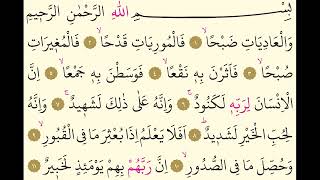 بِسْمِ اللّٰهِ الرَّحْمٰنِ الرَّحِيمِ
وَالْعَادِيَاتِ ضَبْحًاۙ ١ فَالْمُورِيَاتِ قَدْحًاۙ ٢ فَالْمُغٖيرَاتِ
صُبْحًاۙ ٣ فَاَثَرْنَ بِهٖ نَقْعًاۙ ٤ فَوَسَطْنَ بِهٖ جَمْعًاۙ ٥ اِنَّ
الْاِنْسَانَ لِرَبِّهٖ لَكَنُودٌۚ ٦ وَاِنَّهُ عَلٰى ذٰلِكَ لَشَهٖيدٌۚ ٧ وَاِنَّهُ
لِحُبِّ الْخَيْرِ لَشَدٖيدٌؕ ٨ اَفَلَا يَعْلَمُ اِذَا بُعْثِرَ مَا فِي الْقُبُورِۙ ٩
وَحُصِّلَ مَا فِي الصُّدُورِۙ ١٠ اِنَّ رَبَّهُمْ بِهِمْ يَوْمَئِذٍ لَخَبٖيرٌ ١١